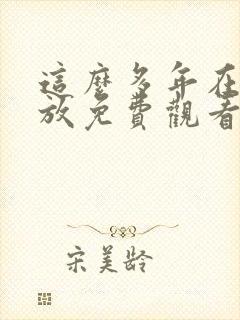 這麼多年在
放免費觀看
宋美龄